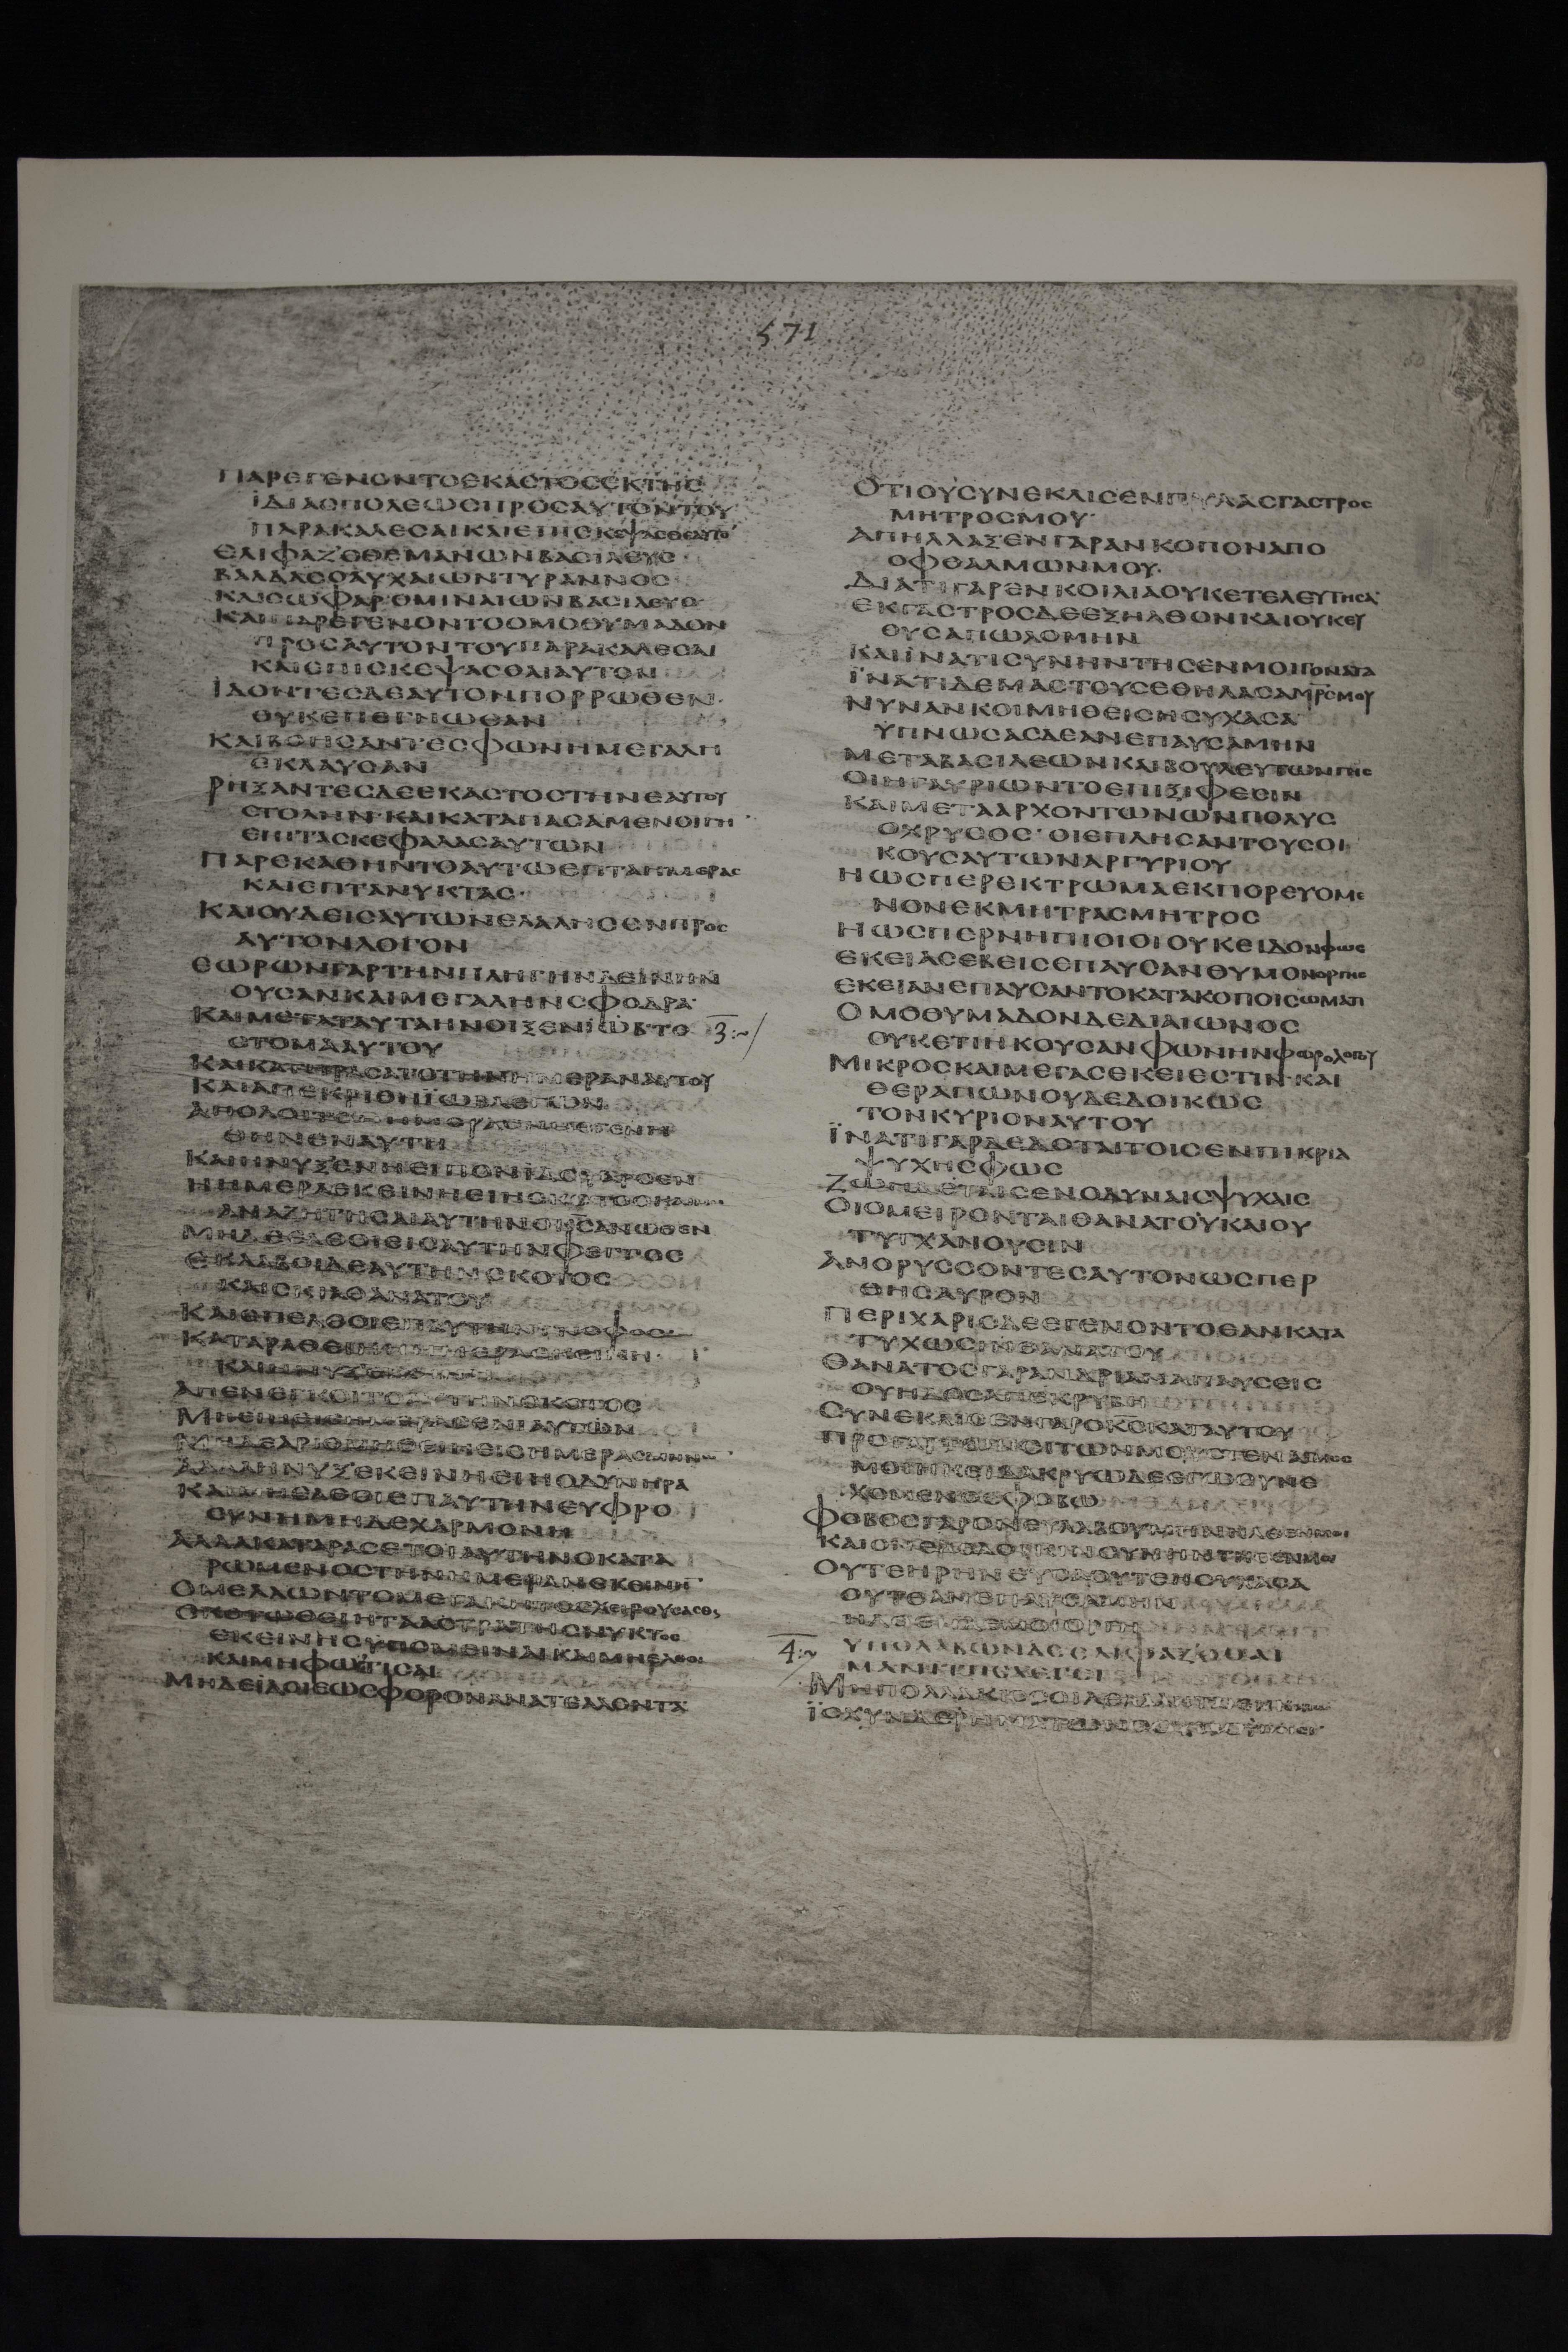 571
ΠΑΡΕΓΕΝΟΝΤΟΕΚΑCΤΟCΕΚΤΗC
ΪΔΙΑCΠΟΛΕΩCΠΡΟCΑΥΤΟΝΤΟΥ
ΠΑΡΑΚΑΛΕCΑΙΚΑΙΕΠΙCΚΕΨΑCΘΑΙΑΥΤΟ
ΕΛΙΦΑΖΟΘΕΜΑΝΩΝΒΑCΙΛΕΥC
ΒΑΛΔΑCΟΑΥΧΑΙΩΝΤΥΡΑΝΝΟC
ΚΑΙCΩΦΑΡΟΜΙΝΑΙΩΝΒΑCΙΛΕΥC
ΚΑΙΠΑΡΕΓΕΝΟΝΤΟΟΜΟΘΥΜΑΔΟΝ
ΠΡΟCΑΥΤΟΝΤΟΥΠΑΡΑΚΑΛΕCΑΙ
ΚΑΙΕΠΙCΚΕΨΑCΘΑΙΑΥΤΟΝ
ΪΔΟΝΤΕCΔΕΑΥΤΟΝΠΟΡΡΩΘΕΝ
ΟΥΚΕΠΕΓΝΩΘΑΝ
ΚΑΙΒΟΗCΑΝΤΕCΦΩΝΗΜΕΓΑΛΗ
ΕΚΛΑΥCΑΝ
ΡΗΞΑΝΤΕCΔΕΕΚΑCΤΟCΤΗΝΕΑΥΤΟΥ
CΤΟΛΗΝ·ΚΑΙΚΑΤΑΠΑCΑΜΕΝΟΙΓΗ
ΕΠΙΤΑCΚΕΦΑΛΑCΑΥΤΩΝ
ΠΑΡΕΚΑΘΗΝΤΟΑΥΤΩΕΠΤΑΗΜΕΡΑC
ΚΑΙΕΠΤΑΝΥΚΤΑC·
ΚΑΙΟΥΔΕΙCΑΥΤΩΝΕΛΑΛΗCΕΝΠΡΟC
ΑΥΤΟΝΛΟΓΟΝ
ΕΩΡΩΝΓΑΡΤΗΝΠΛΗΓΗΝΔΕΙΝΗΝ
ΟΥCΑΝΚΑΙΜΕΓΑΛΗΝCΦΟΔΡΑ·
ΚΑΙΜΕΤΑΤΑΥΤΑΗΝΟΙΞΕΝΪΩΒΤΟ 3:~/
CΤΟΜΑΑΥΤΟΥ
ΚΑΙΚΑΤΗΡΑCΑΤΟΤΗΝΗΜΕΡΑΝΑΥΤΟΥ
ΚΑΙΑΠΕΚΡΙΘΗΪΩΒΛΕΓΩΝ
ΘΗΝΕΝΑΥΤΗ
ΚΑΙΗΝΥΞΕΝΗΕΙΠΟΝΙΔΟΥΑΡCΕΝ
ΑΝΑΖΗΤΗCΑΙΑΥΤΗΝΟΚCΑΝΩΘΕΝ
ΜΗΔΕΕΛΘΟΙΕΙCΑΥΤΗΝΦΕΓΓΟC
ΕΚΛΑΒΟΙΔΕΑΥΤΗΝCΚΟΤΟC
ΚΑΙCΚΙΑΘΑΝΑΤΟΥ
ΚΑΙΕΠΕΛΘΟΙΕΠΑΥΤΗΝΓΝΟΦΟC
ΑΠΕΝΕΓΚΟΙΤΟΑΥΤΗΝCΚΟΤΟC
ΑΛΛΑΗΝΥΞΕΚΕΙΝΗΕΙΗΟΔΥΝΗΡΑ
ΚΑΙΜΗΕΛΘΟΙΕΠΑΥΤΗΝΕΥΦΡΟ
CΥΝΗΜΗΔΕΧΑΡΜΟΝΗ
ΑΛΛΑΚΑΤΑΡΑCΕΤΟΙΑΥΤΗΝΟΚΑΤΑ
ΡΩΜΕΝΟCΤΗΝΗΜΕΡΑΝΕΚΕΙΝΗ
ΕΚΕΙΝΗCΥΠΟΜΕΙΝΑΙΚΑΙΜΗΕΛΘΟΙ
ΚΑΙΜΗΦΩΤΙCΑΙ
ΜΗΔΕΙΔΟΙΕΩCΦΟΡΟΝΑΝΑΤΕΛΛΟΝΤΑ
ΟΤΙΟΥCΥΝΕΚΛΙCΕΝΠΥΛΑCΓΑCΤΡΟC
ΜΗΤΡΟCΜΟΥ·
ΑΠΗΛΛΑΞΕΝΓΑΡΑΝΚΟΠΟΝΑΠΟ
ΟΦΘΑΛΜΩΝΜΟΥ·
ΔΙΑΤΙΓΑΡΕΝΚΟΙΛΙΑΟΥΚΕΤΕΛΕΥΤΗCΑ
ΕΚΓΑCΤΡΟCΔΕΕΞΗΛΘΟΝΚΑΙΟΥΚΕΥ
ΘΥCΑΠΩΛΟΜΗΝ
ΚΑΙΪΝΑΤΙCΥΝΗΝΤΗCΕΝΜΟΙΓΟΝΑΤΑ
ΪΝΑΤΙΔΕΜΑCΤΟΥCΕΘΗΛΑCΑΜΡCΜΟΥ
ΝΥΝΑΝΚΟΙΜΗΘΕΙCΗCΥΧΑCΑ
ΫΠΝΩCΑCΔΕΑΝΕΠΑΥCΑΜΗΝ
ΜΕΤΑΒΑCΙΛΕΩΝΚΑΙΒΟΥΛΕΥΤΩΝΓΗC
ΟΙΗΓΑΥΡΙΩΝΤΟΕΠΙΞΙΦΕCΙΝ
ΚΑΙΜΕΤΑΑΡΧΟΝΤΩΝΩΝΠΟΛΥC
ΟΧΡΥCΟC·ΟΙΕΠΛΗCΑΝΤΟΥCΟΙ
ΚΟΥCΑΥΤΩΝΑΡΓΥΡΙΟΥ
ΗΩCΠΕΡΕΚΤΡΩΜΑΕΚΠΟΡΕΥΟΜΕ
ΝΟΝΕΚΜΗΤΡΑCΜΗΤΡΟC
ΗΩCΠΕΡΝΗΠΙΟΙΟΙΟΥΚΕΙΔΟΝΦΩC
ΕΚΕΙΑCΕΒΕΙCΕΠΑΥCΑΝΘΥΜΟΝΟΡΓΗC
ΕΚΕΙΑΝΕΠΑΥCΑΝΤΟΚΑΤΑΚΟΠΟΙCΩΜΑΤΙ
ΟΜΟΘΥΜΑΔΟΝΔΕΔΙΑΙΩΝΟC
ΟΥΚΕΤΙΗΚΟΥCΑΝΦΩΝΗΝΦΟΡΟΛΟΓΟΥ
ΜΙΚΡΟCΚΑΙΜΕΓΑCΕΚΕΙΕCΤΙΝ·ΚΑΙ
ΘΕΡΑΠΩΝΟΥΔΕΔΟΙΚΩC
ΤΟΝΚΥΡΙΟΝΑΥΤΟΥ
ΪΝΑΤΙΓΑΡΔΕΔΟΤΑΙΤΟΙCΕΝΠΙΚΡΙΑ
ΨΥΧΗCΦΩC
ΖΩΗΔΕΤΑΙCΕΝΟΔΥΝΑΙCΨΥΧΑΙC
ΟΙΟΜΕΙΡΟΝΤΑΙΘΑΝΑΤΟΥΚΑΙΟΥ
ΤΥΓΧΑΝΟΥCΙΝ
ΑΝΟΡΥCCΟΝΤΕCΑΥΤΟΝΩCΠΕΡ
ΘΗCΑΥΡΟΝ
ΠΕΡΙΧΑΡΙCΔΕΕΓΕΝΟΝΤΟΕΑΝΚΑΤΑ
ΤΥΧΩCΙΝΘΑΝΑΤΟΥ
ΘΑΝΑΤΟCΓΑΡΑΝΔΡΙΑΝΑΠΑΥCΕΙC
ΟΥΗΟΔΟCΑΠΕΚΡΥΒΗ
CΥΝΕΚΛΙCΕΝΓΑΡΟΚCΚΑΤΑΥΤΟΥ
ΧΟΜΕΝΟCΦΟΒΩ
ΟΥΤΕΗΡΗΝΕΥCΑΟΥΤΕΗCΥΧΑCΑ
ΟΥΤΕΑΝΕΠΑΥCΑΜΗΝ
4:~ ΥΠΟΛΑΒΩΝΔΕΕΛΙΦΑΖΟΘΑΙ
ΜΑΝΙΤΗCΛΕΓΕΙ